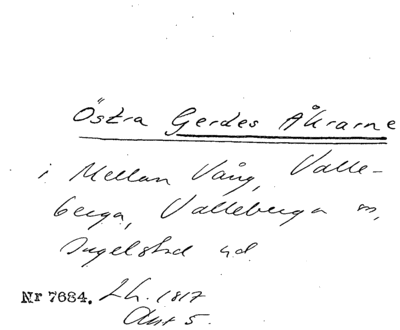 Östra Gerdes Åkrarne
i Mellan Vång, Valle-
berga, Valleberga sn,
Ingelstad hd
Nr 7684. Lh. 1817
Akt 5.